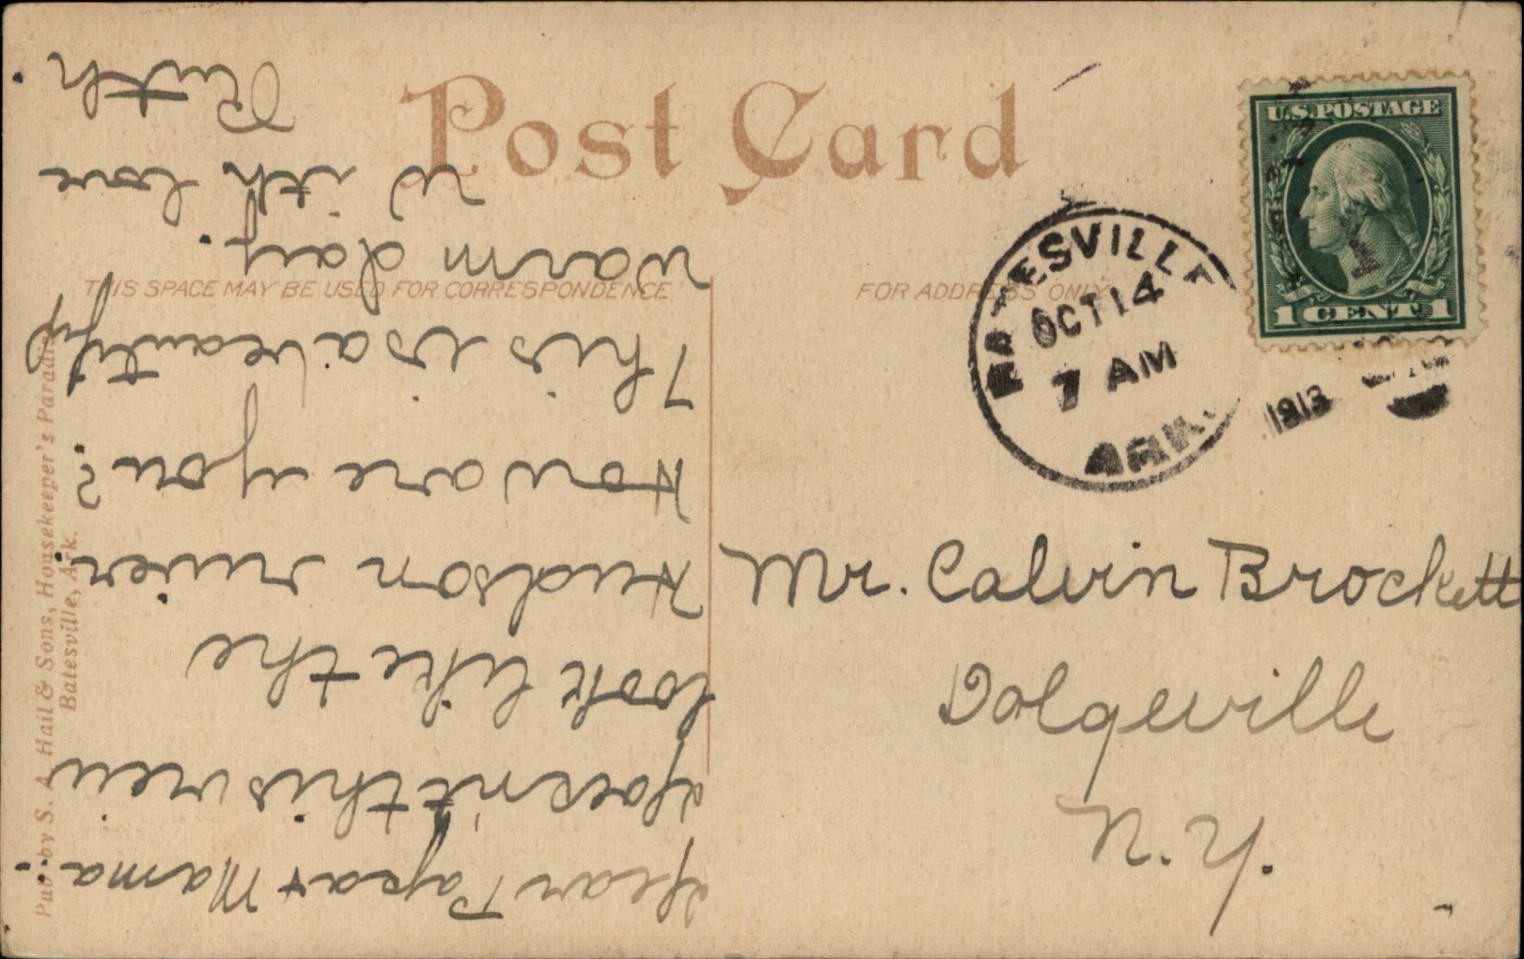 Post Card
THIS SPACE MAY BE USED FOR CORRESPONDENCE
FOR ADDRESS ONLY
U.S. POSTAGE
1 CENT 1
BATESVILLE
OCT 14
7 AM
1913
ARK.
Mr. Calvin Brockett
Dolgeville
N.Y.
Dear Papa + Mama:-
Doesn't this view
look like the
Hudson river
How are you?
This is a beautiful
warm day.
With love
Ruth.
Pub. by S. A. Hail & Sons, Housekeeper's Paradise
Batesville, Ark.